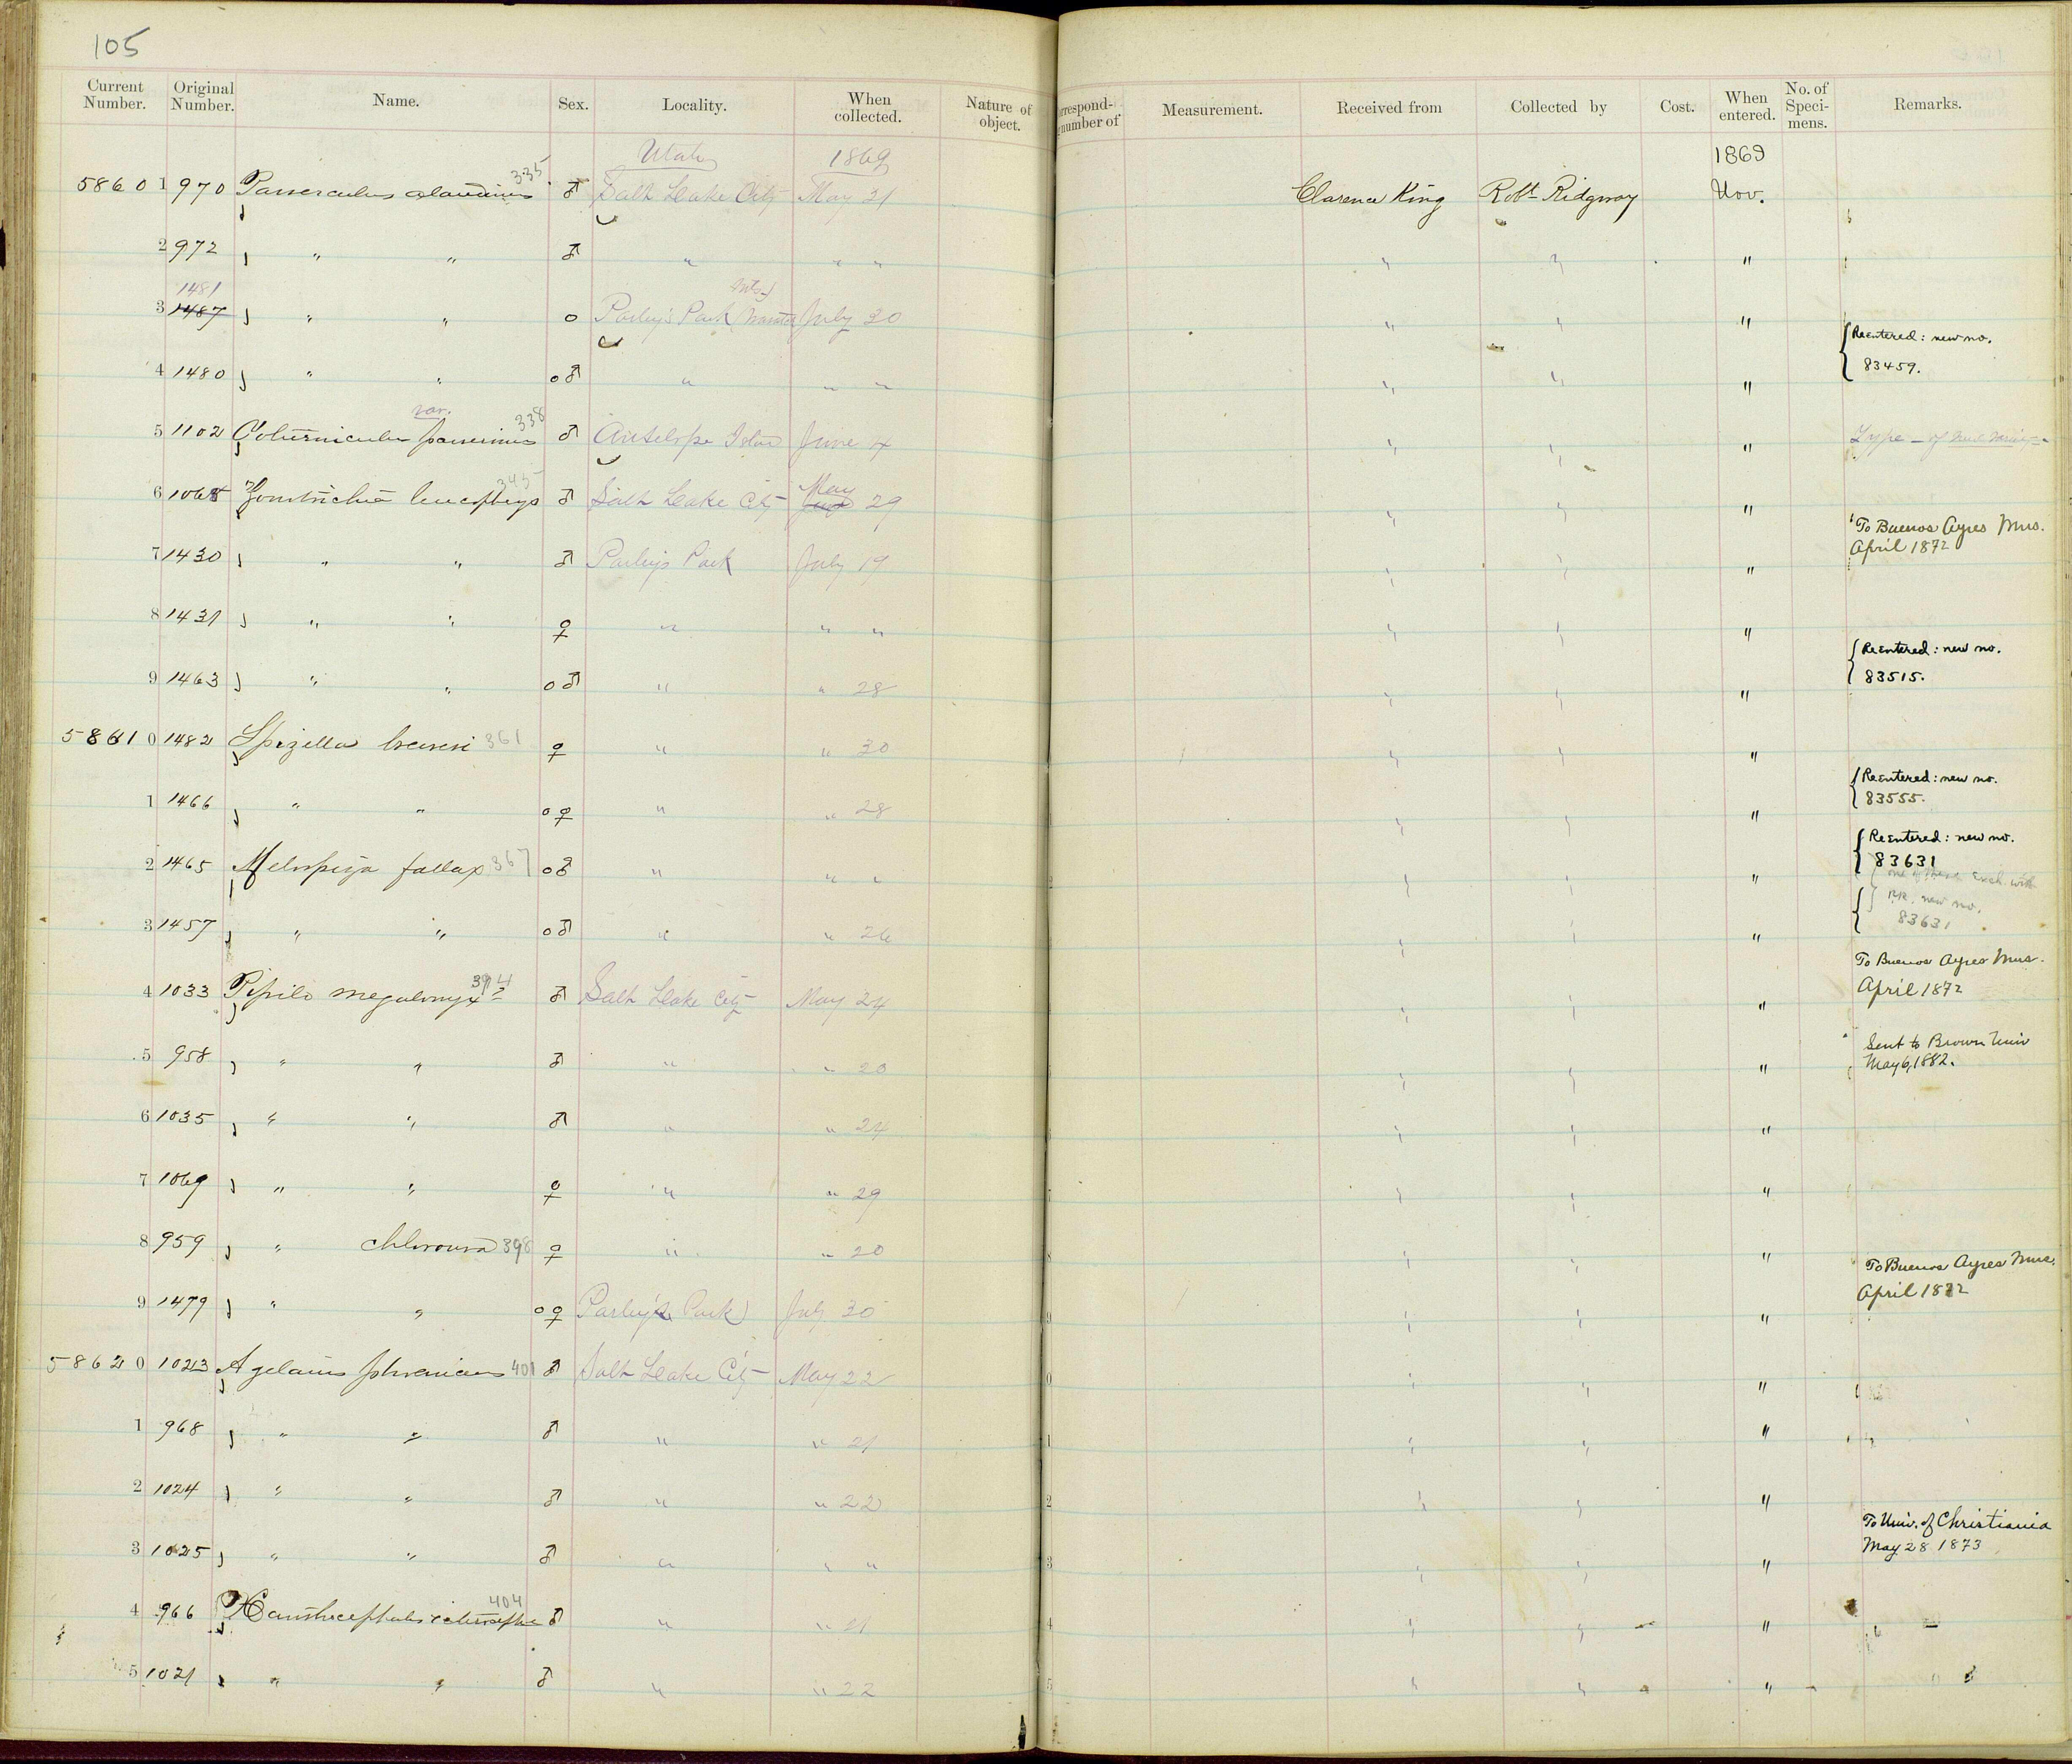 105
Current Number. Original Number. Name. Sex. Locality. When collected. Nature of object. Correspond- number of Measurement. Received from Collected by Cost. When entered. No. of Speci- mens. Remarks.
Utah 1869 1869
58601 970 Passerculus alaudinus 335 ♂ Salt Lake City May 21 Clarence King Robt Ridgway Nov.
2 972 " " ♂ " " " " " "
1481 Mts.
3 1487 " " o Parley's Park Wasatch July 30 " " "
4 1480 " " o ♂ " " " " " " { Reentered: new no. 83459.
var.
5 1102 Coturniculus passerinus 338 ♂ Antelope Island June 4 " " " Type - of
May
6 1068 Zonotrichia leucophrys 345 ♂ Salt Lake City June 29 " " "
7 1430 " " ♂ Parley's Park July 19 " " " To Buenos Ayres Mus. April 1872
8 1431 " " ♀ " " " " " "
9 1463 " " o ♂ " " 28 " " " { Reentered: new no. 83515.
58610 1482 Spizella breweri 361 ♀ " " 30 " " "
1 1466 " " o ♀ " " 28 " " " { Reentered: new no. 83555.
2 1465 Melospiza fallax 367 o ♂ " " " " " " { Reentered: new no. 83631
one of these exch. with
3 1457 " " o ♂ " " 26 " " " { R.R. new no. 83631
4 1033 Pipilo megalonyx 394 ♂ Salt Lake City May 24 " " " To Buenos Ayres Mus. April 1872
5 958 " " ♂ " " 20 " " " Sent to Brown Univ May 6, 1882.
6 1035 " " ♂ " " 24 " " "
7 1069 " " ♀ " " 29 " " "
8 959 " chlorura 398 ♀ " " 20 " " "
9 1479 " " o ♀ Parley's Park July 30 " " " To Buenos Ayres Mus. April 1872
58620 1023 Agelaius phoeniceus 401 ♂ Salt Lake City May 22 " " "
1 968 " " ♂ " " 21 " " "
2 1024 " " ♂ " " 22 " " "
3 1025 " " ♂ " " " " " " To Univ. of Christiania May 28 1873
4 966 Xanthocephalus icterocephalus 404 ♂ " " 21 " " "
5 1021 " " ♂ " " 22 " " "